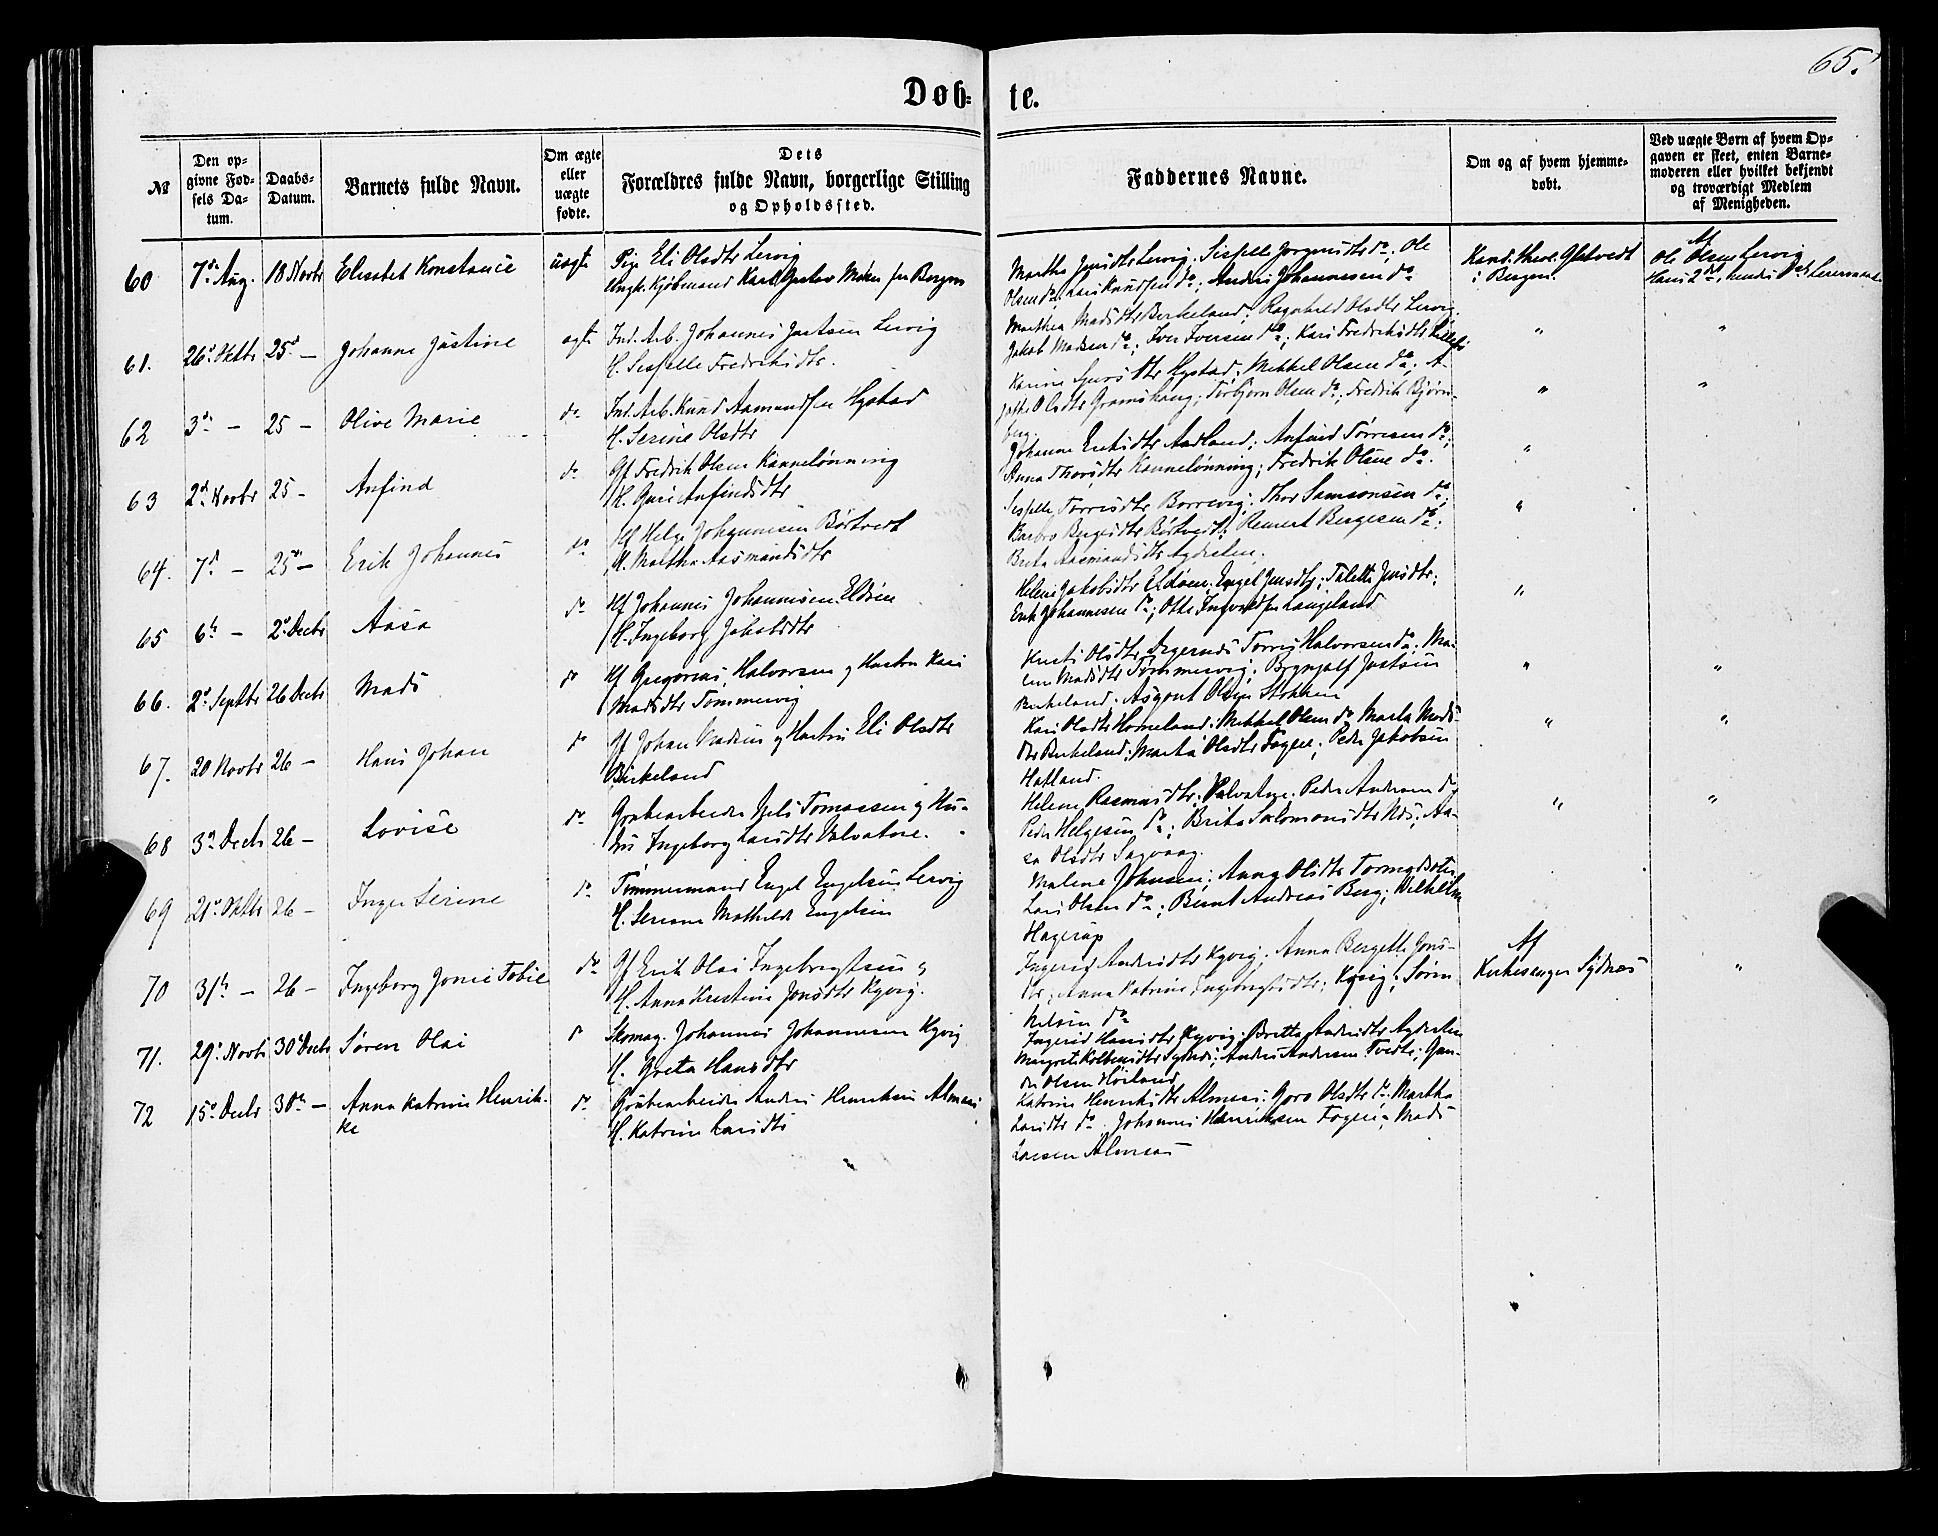 65.
Døb-te.
№
Den opgivne Fødsels Datum.
Daabs-Datum.
Barnets fulde Navn.
Om ægte eller uægte fødte.
Dets Forældres fulde Navn, borgerlige Stilling og Opholdssted.
Faddernes Navne.
Om og af hvem hjemmedøbt.
Ved uægte Børn af hvem Opgaven er skeet, enten Barnemoderen eller hvilket bekjendt og troværdigt Medlem af Menigheden.
60 7de Aug. 18 Novbr Elisabet Konstance uægte
Pige Eli Olsdtr Lervig
Ungk. Kjøbmand Karl Gustav fra Bergen
Martha Lervig; Sisselle do; Ole
Olsen do; Lars Knudsen do; Anders Johannesen do
Kand. theol.
i Bergen.
Af
Ole Olsen Lervig
61. 26de Oktbr 25de — Johanne Justine ægte
Ind. Arb. Johannes Justsen Lervig
H. Sisselle Fredriksdtr.
Marthea Madsdtr Birkeland; Ragnhild Olsdtr Lervig;
Jakob Madsen do; Iver Iversen do; Kari Fredriksdtr
" "
62 3die — 25 — Olive Marie do
Ind. Arb. Knud Aamundsen Hystad
H. Serine Olsdtr
Karine Hystad; Mikkel Olsen do; A-
Olsdtr Gramshaug; Torbjørn Olsen do; Fredrik Bjørn-
berg.
" "
63 2d Novbr 25 — Anfind do
Gf Fredrik Olsen Kannelønning
H. Guri Anfindsdtr
Johanne Eriksdtr Aadland; Anfind Tørresen do;
Anna Thorsdtr Kannelønning; Fredrik Olsen do.
"
64. 7d — 25de — Erik Johannes do
Hf Helge Johannesen Børtvedt
H. Martha Aasmundsdtr
Sisselle Tørrisdtr Borrevig; Thor Samsonsen do;
Barbro Bergesdtr Børtvedt; Remert Bergesen do;
Brita Aasmundsdtr
"
65 6te — 2d Decbr Aasa do
Hf Johannes Johannesen Eldøen
H. Ingeborg Jakobsdtr
Helene Jakobsdtr Eldøen; Engel Jensdtr; Taletta Jensdtr;
Erik Johannesen do; Otte Langeland
"
66. 2d Septbr 26 Decbr Mads do
Hf Gregorius Halvorsen og Hustru Kari
Madsdtr Tømmervig
Kirsti Olsdtr Digernæs; Tørris Halvorsen do; Ma-
ren Madsdtr Tømmervig; Brynjolf Justsen
Birkeland; Asgout Olsen Stokken
" "
67. 20 Novbr 26 — Hans Johan do
Gf Johan Madsen og Hustru Eli Olsdtr
Birkeland
Kari Olsdtr Hommeland; Mikkel Olsen do; Marta Mads-
dtr Birkeland; Marta Olsdtr Fagerø; Peder Jakobsen
Hatland.
" "
68 3d Decbr 26 — Lovise do
Grubearbeider Nils Tomassen og Hu-
stru Ingeborg Larsdtr Valvatne.
Helene Rasmusdtr Valvatne; Peder Andersen do;
Peder Helgesen do; Brita Salomonsdtr Næs; Aa-
sa Olsdtr Sagvaag.
" "
69 21de Oktbr 26 — Inger Serine do
Tømmermand Engel Engelsen Lervig
H. Seriane Mathilde Engelsen
Malene Johnsen; Anna Olsdtr
Lars Olsen do; Bernt Andreas Berg; Vilhelm
Hagerup
70 31te — 26 — Ingeborg Jonie Tobie do
Gf Erik Olai Ingebrigtsen og
H. Anna Kristine Jonsdtr Kyvig.
Ingerid Andersdtr Kyvig; Anna Bergitte Jons-
dtr; Anna Katrine Ingebrigtsdtr; Kyvig; Søren
Nilsen do
Af
Kirkesanger Sydnæs
"
71. 29de Novbr 30de Decbr Søren Olai do
Skomag. Johannes Johannesen Kyvig
H. Greta Hansdtr
Ingerid Hansdtr Kyvig; Britta Andersdtr
Margreta Kolbensdtr Sydnæs; Anders Andersen Tvedte; Gun-
der Olsen Høiland
72 15de Decbr 30te — Anna Katrine Henrik-
ke do
Grubearbeider Anders Henriksen Almaas
H. Katrine Larsdtr
Katrine Henriksdtr Almaas; Goro Olsdtr do; Martha
Larsdtr do; Johannes Henriksen Fagerø; Mads
Larsen Almaas